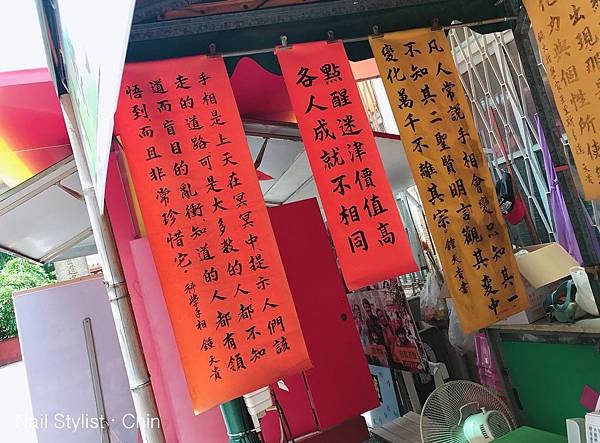 出現那
力與個性所使
凡人常說手相會變只知其一
不知其二聖賢明言觀其變中
變化萬千不離其宗 鍾天貴
點醒迷津價值高
各人成就不相同
手相是上天在冥冥中提示人們該
走的道路可是大多數的人都不知
道而盲目的亂衝知道的人都有領
悟到而且非常珍惜它。科學手相 鍾天貴
Nail Stylist · Chin